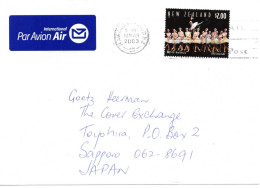 International
Par Avion Air
NEW ZEALAND
$2.00
2003
Goetz Heermann
The Cover Exchange
Toyohira, P.O. Box 2
Sapporo 062-8691
JAPAN